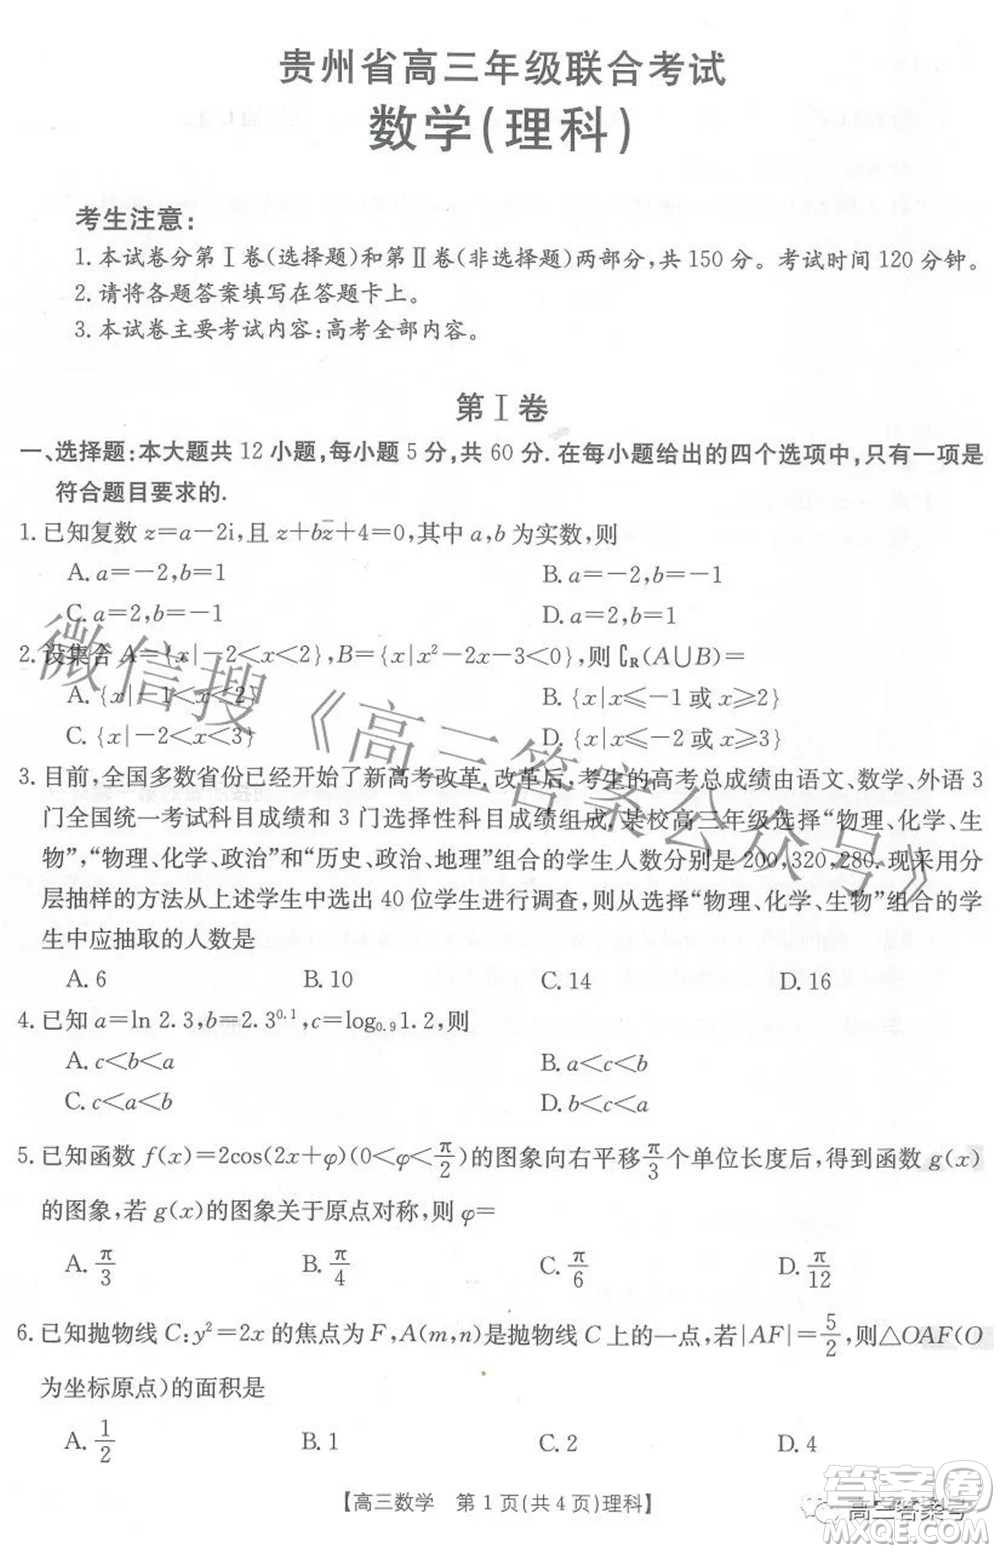 贵州省高三年级联合考试
数学(理科)
考生注意:
1.本试卷分第Ⅰ卷(选择题)和第Ⅱ卷(非选择题)两部分,共150分。考试时间120分钟。
2.请将各题答案填写在答题卡上。
3.本试卷主要考试内容:高考全部内容。
第Ⅰ卷
一、选择题:本大题共12小题,每小题5分,共60分.在每小题给出的四个选项中,只有一项是
符合题目要求的.
1.已知复数z=a-2i,且z+bz̄+4=0,其中a,b为实数,则
A.a=-2,b=1 B.a=-2,b=-1
C.a=2,b=-1 D.a=2,b=1
2.设集合A={x|-2<x<2},B={x|x²-2x-3<0},则∁R(A∪B)=
A.{x|-1<x<2} B.{x|x≤-1或x≥2}
C.{x|-2<x<3} D.{x|x≤-2或x≥3}
3.目前,全国多数省份已经开始了新高考改革,改革后,考生的高考总成绩由语文、数学、外语3
门全国统一考试科目成绩和3门选择性科目成绩组成,某校高三年级选择“物理、化学、生
物”,“物理、化学、政治”和“历史、政治、地理”组合的学生人数分别是200,320,280.现采用分
层抽样的方法从上述学生中选出40位学生进行调查,则从选择“物理、化学、生物”组合的学
生中应抽取的人数是
A.6 B.10 C.14 D.16
4.已知a=ln 2.3,b=2.3^0.1,c=log₀.₉1.2,则
A.c<b<a B.a<c<b
C.c<a<b D.b<c<a
5.已知函数f(x)=2cos(2x+φ)(0<φ<π/2)的图象向右平移π/3个单位长度后,得到函数g(x)
的图象,若g(x)的图象关于原点对称,则φ=
A.π/3 B.π/4 C.π/6 D.π/12
6.已知抛物线C:y²=2x的焦点为F,A(m,n)是抛物线C上的一点,若|AF|=5/2,则△OAF(O
为坐标原点)的面积是
A.1/2 B.1 C.2 D.4
【高三数学 第1页(共4页)理科】
微信搜《高三答案公众号》
高三答案号
答案圈
MXQE.COM